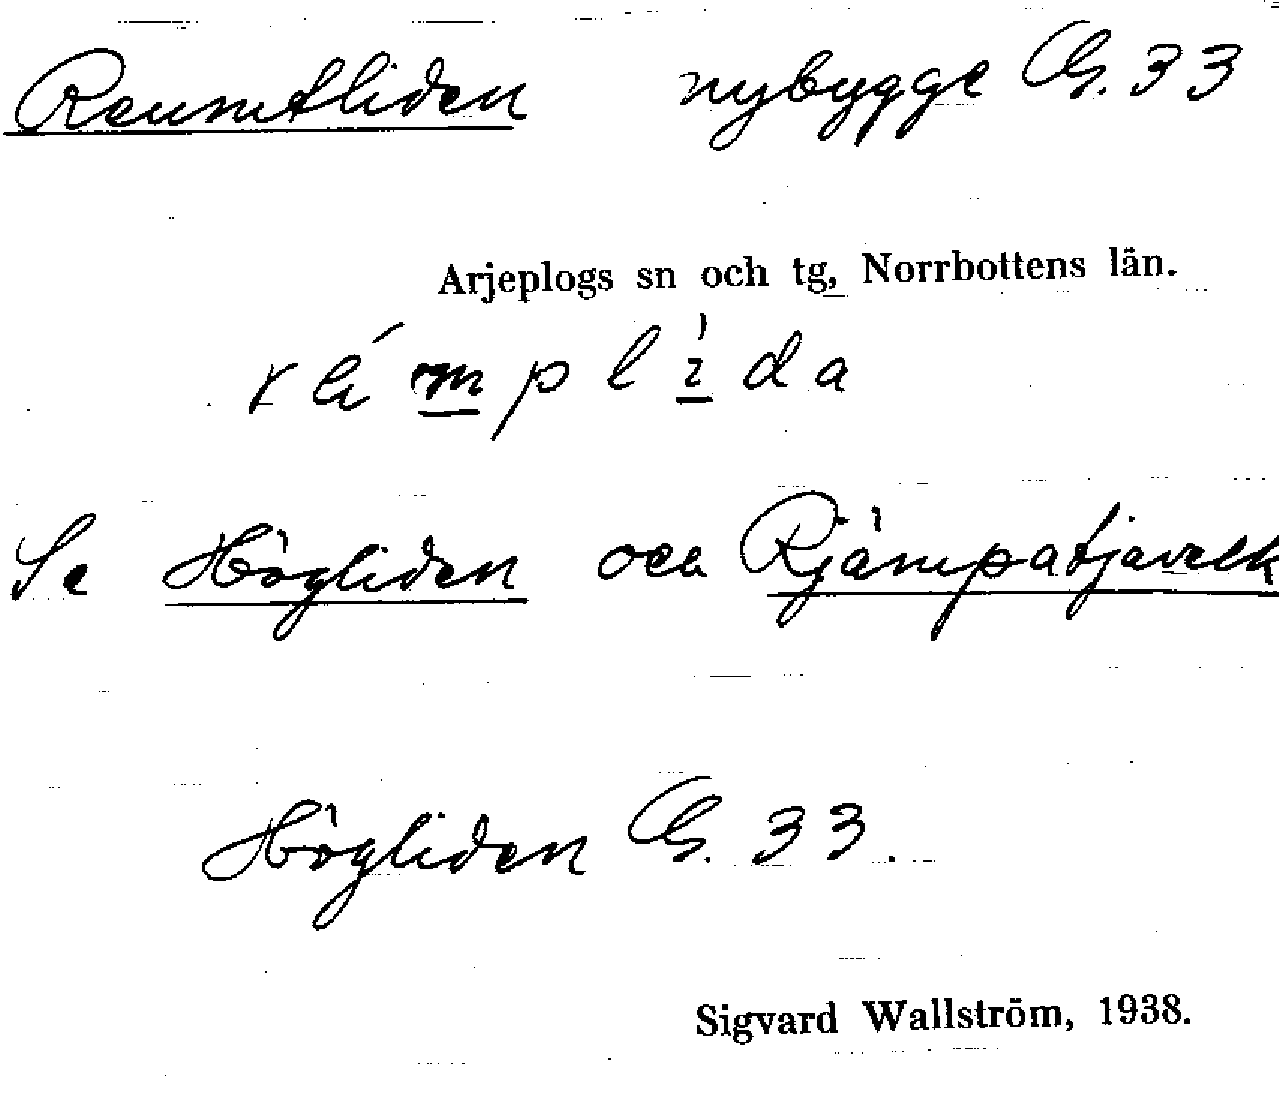 Reumtliden nybygge G. 33
Arjeplogs sn och tg, Norrbottens län.
Se Högliden och Rjämpatjavelk
Högliden G. 33.
Sigvard Wallström, 1938.